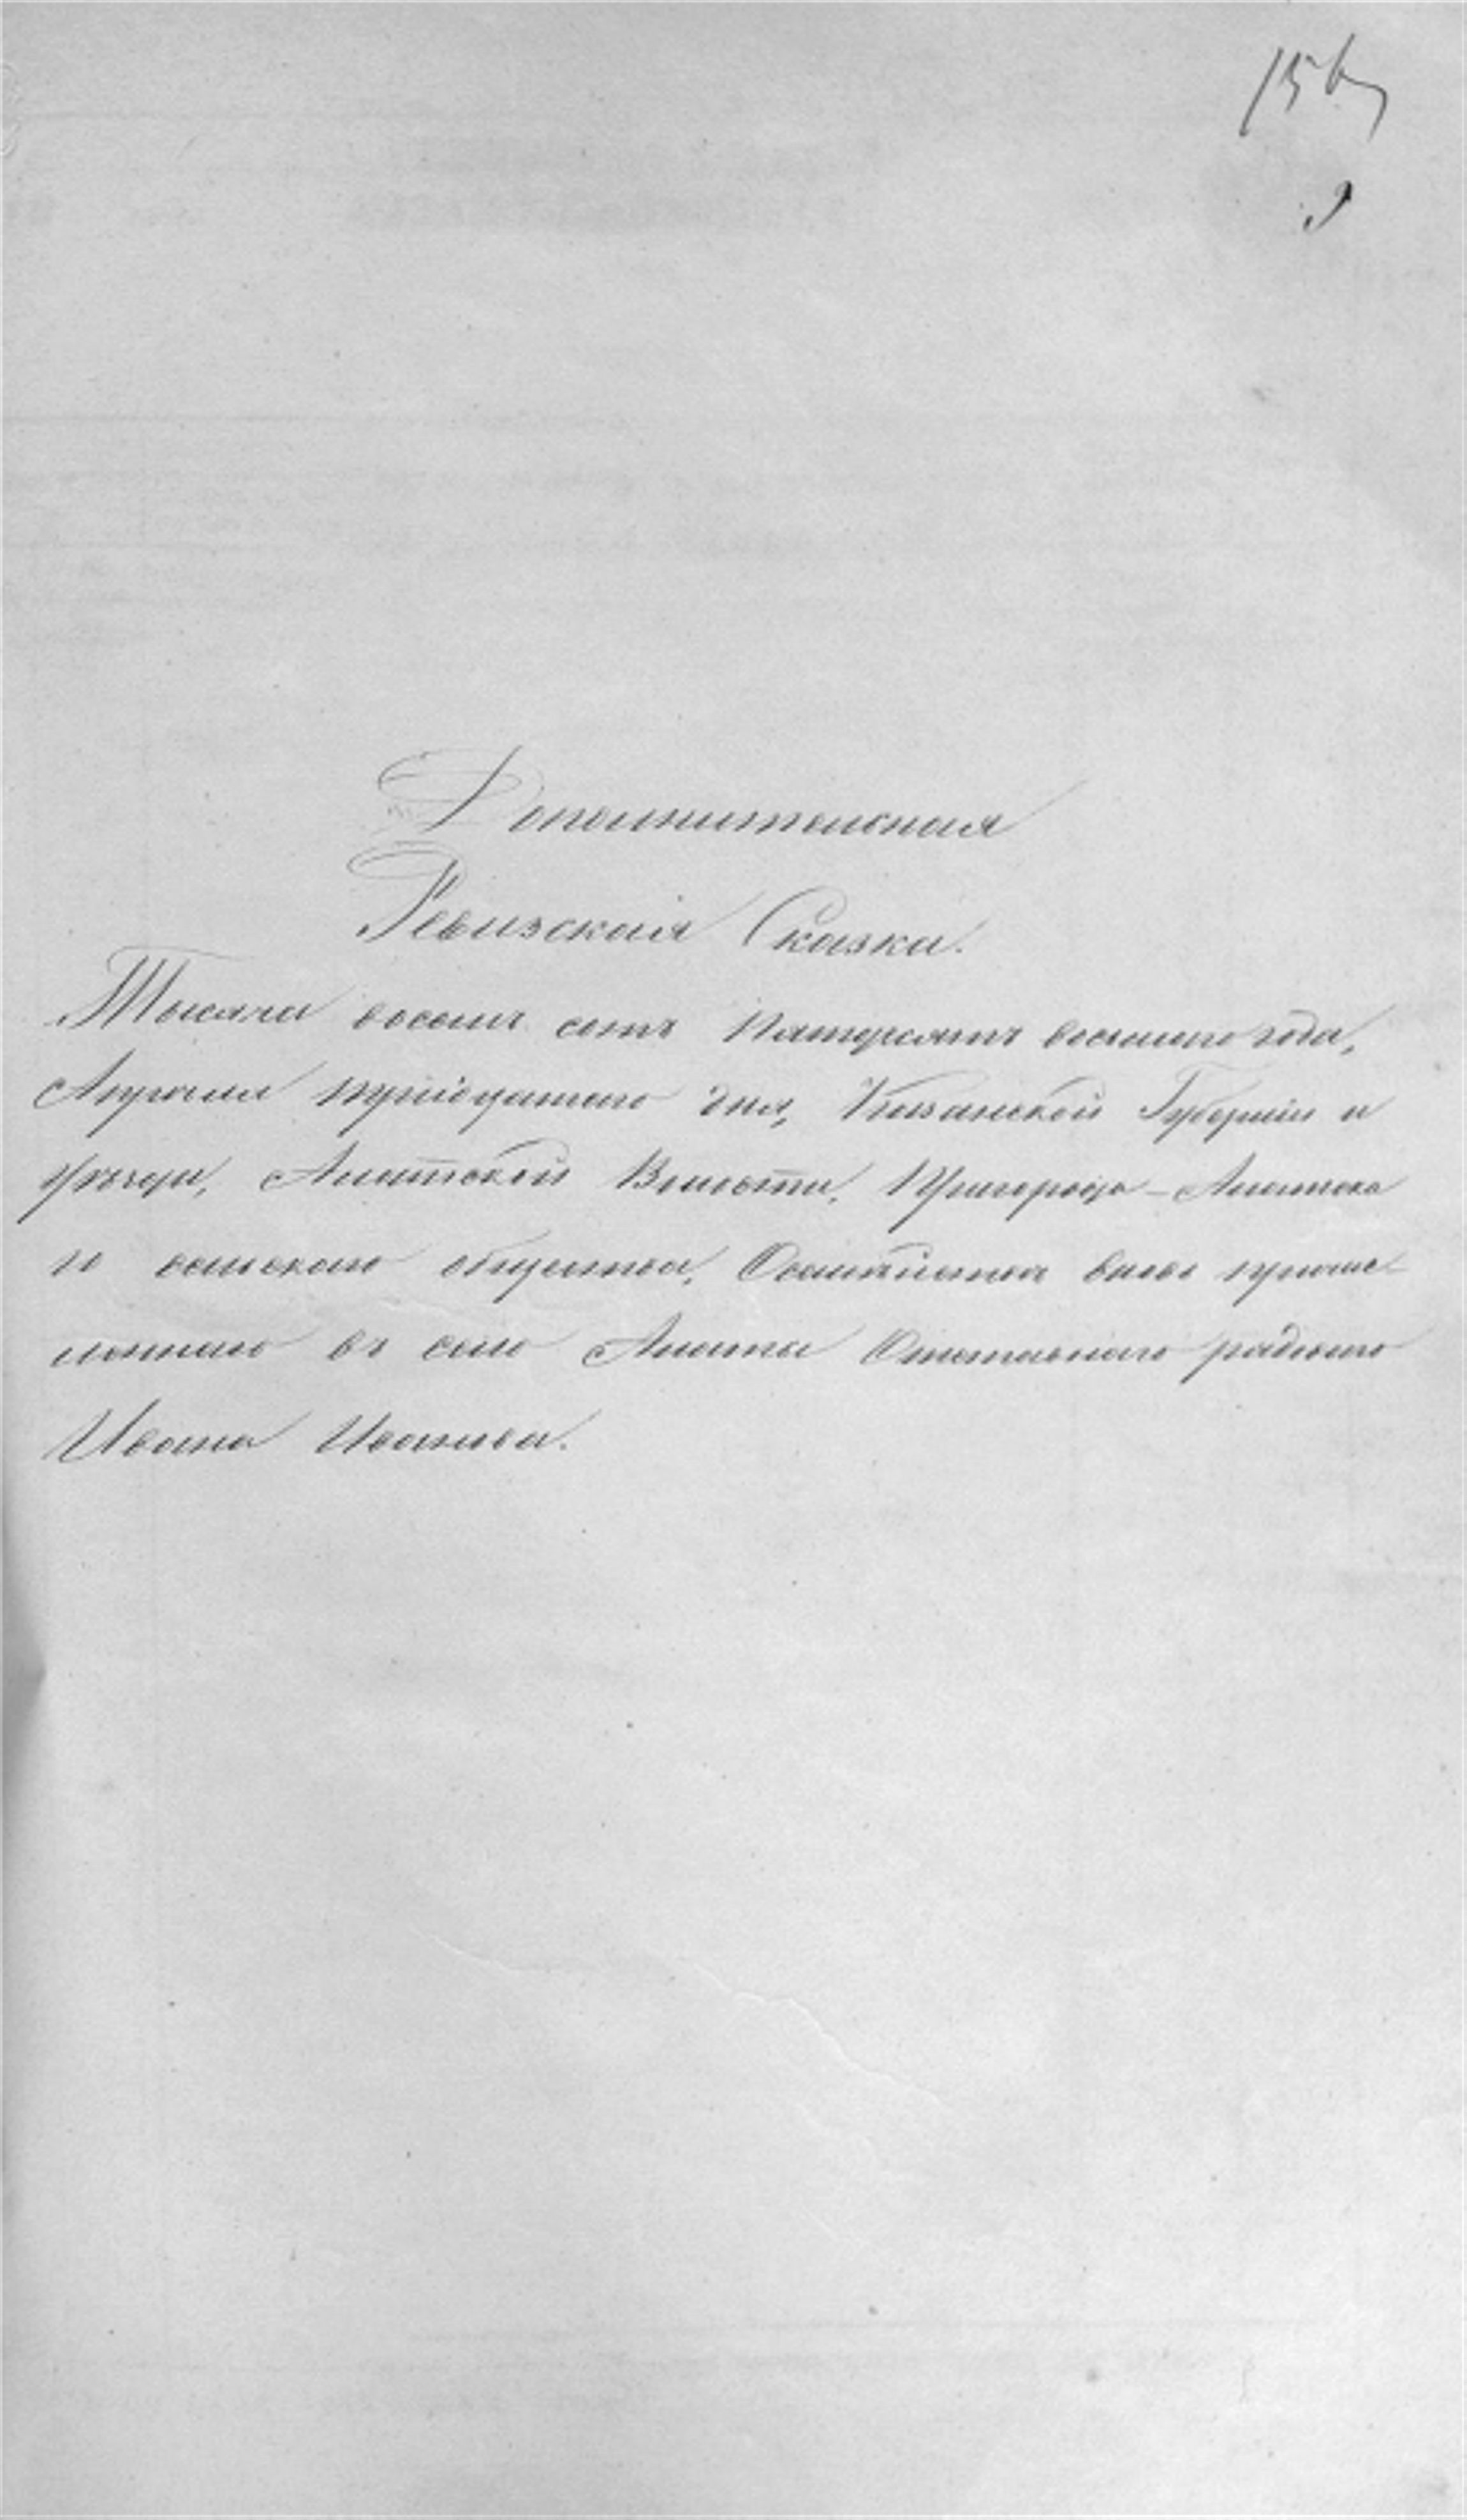 156
9
Дополнительная
Ревизская Сказка.
Тысяча восемь сотъ пятьдесятъ восьмого года,
Апреля тридцатаго дня, Казанской Губерніи и
уѣзда, Алатской Волости, Пригорода-Алатска
го сельскаго общества,
въ село Алаты Отставнаго рядоваго
Ивана Иванова.